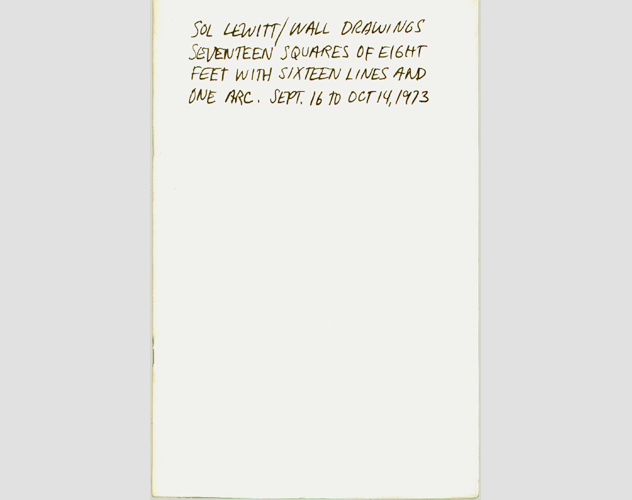 SOL LEWITT/WALL DRAWINGS
SEVENTEEN SQUARES OF EIGHT
FEET WITH SIXTEEN LINES AND
ONE ARC. SEPT. 16 TO OCT 14, 1973